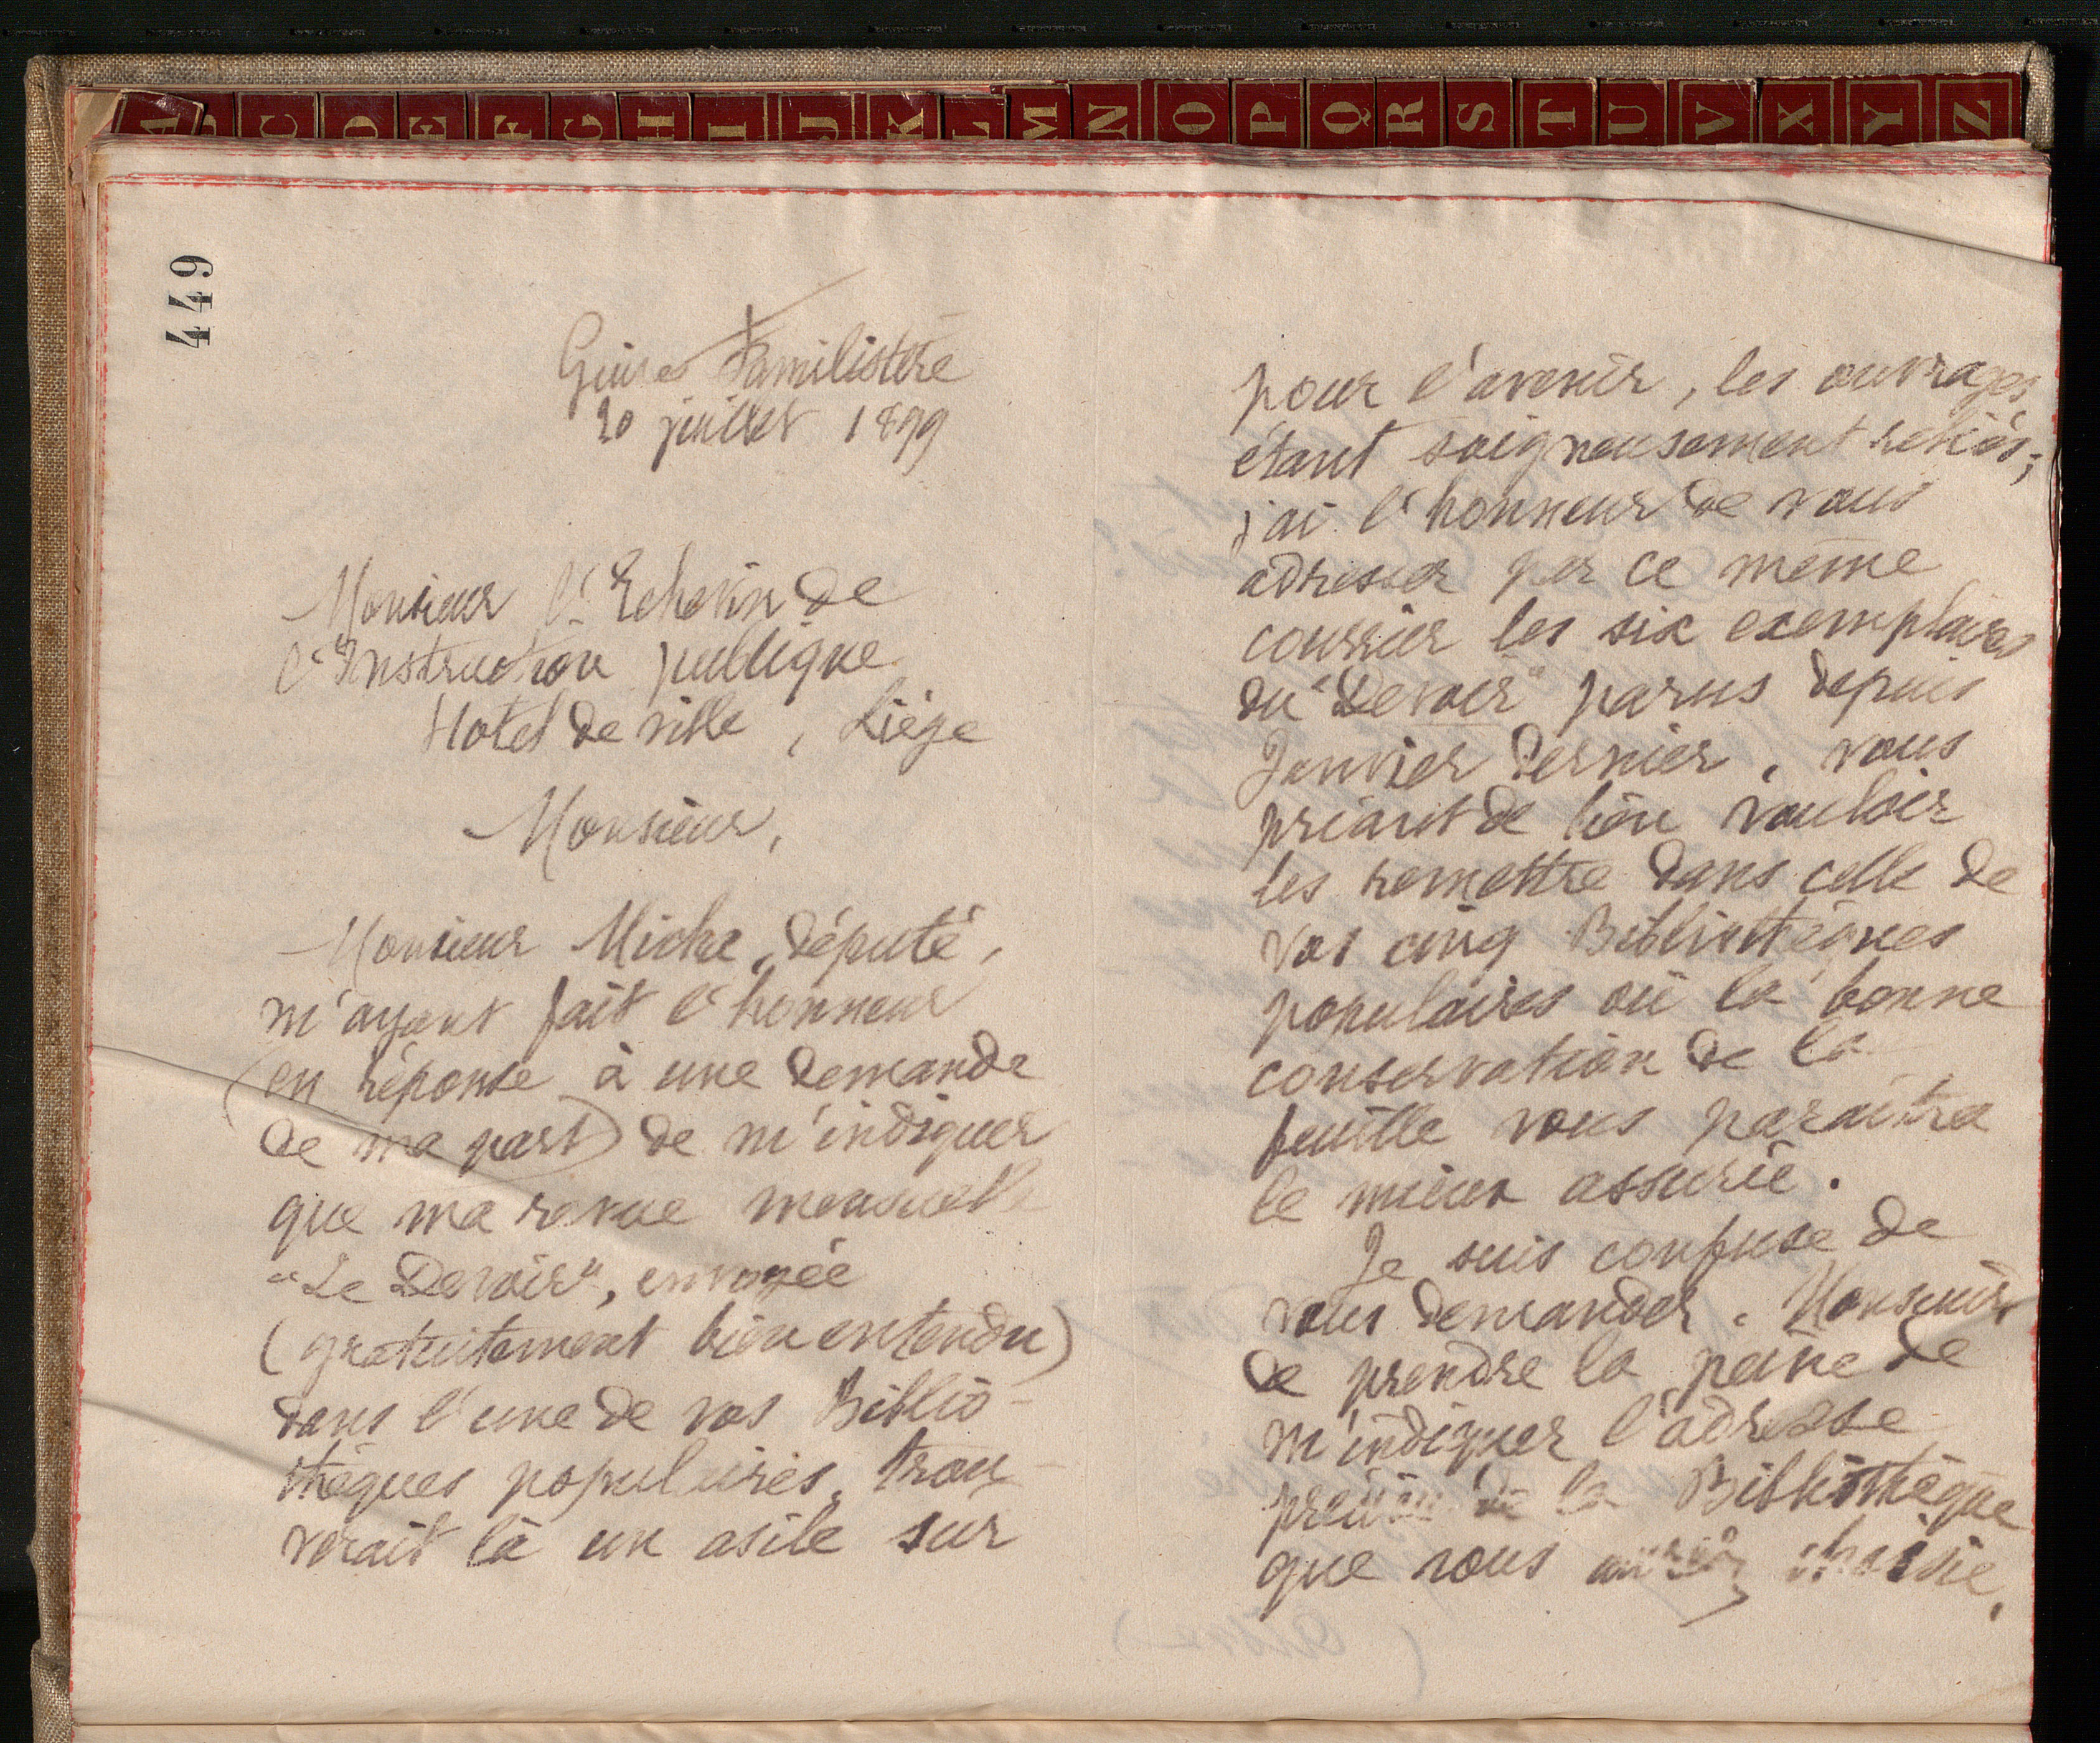 A B C D E F G H I J K L M N O P Q R S T U V X Y Z
449
Guise Familistère
20 juillet 1899
Monsieur l'Echevin de
l'Instruction publique
Hotel de ville, Liège
Monsieur,
Monsieur Miche, député,
m'ayant fait l'honneur
(en réponse à une demande
de ma part) de m'indiquer
que ma revue mensuelle
"Le Devoir", envoyée
(gratuitement bien entendu)
dans l'une de vos Biblio-
thèques populaires, trou-
verait là un asile sur
pour l'avenir, les ouvrages
étant soigneusement reliés;
j'ai l'honneur de vous
adresser par ce même
courrier les six exemplaires
du "Devoir" parus depuis
Janvier dernier, vous
priant de bien vouloir
les remettre dans celle de
vos cinq Bibliothèques
populaires où la bonne
conservation de la
feuille vous paraîtra
le mieux assurée.
Je suis confuse de
vous demander, Monsieur
de prendre la peine de
m'indiquer l'adresse
de la Bibliothèque
que vous aurez choisie,